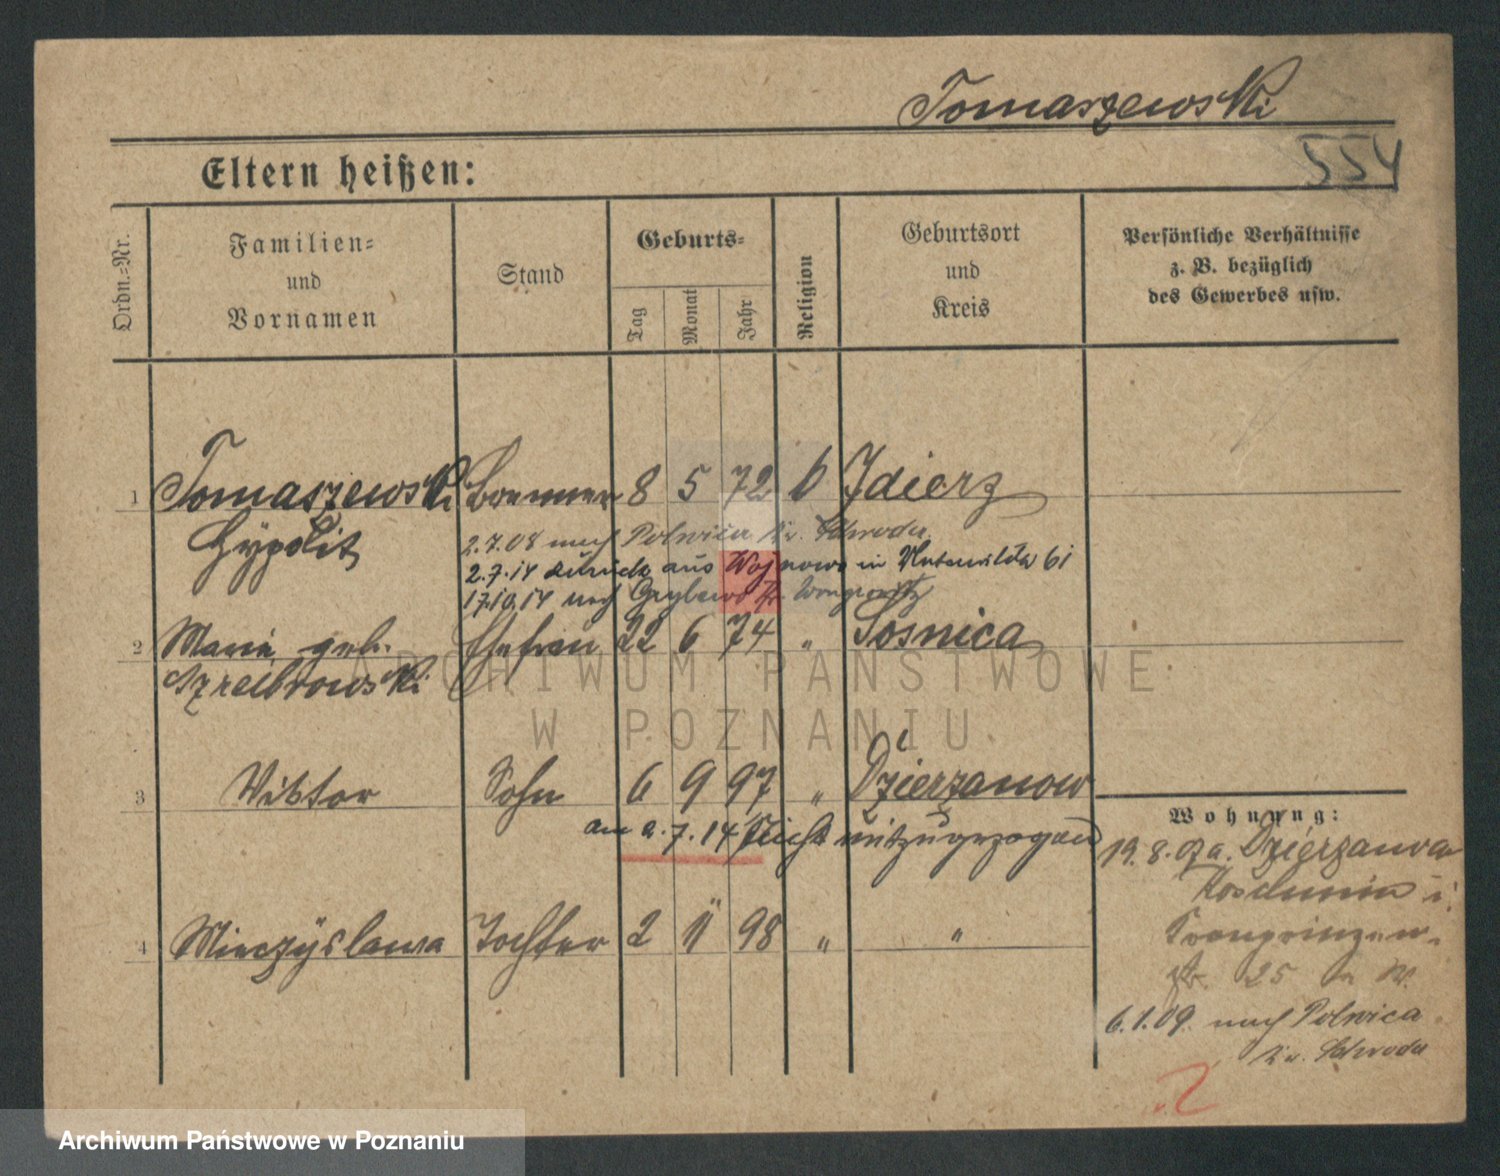 Tomaszewski
554
Eltern heißen:
Ordn.-Nr.
Familien-
und
Vornamen
Stand
Geburts-
Tag
Monat
Jahr
Religion
Geburtsort
und
Kreis
Persönliche Verhältnisse
z. B. bezüglich
des Gewerbes usw.
1 Tomaszewski Brenner 8 5 72 k Zdierz
Hypolit
2.7.08 nach Polwica Kr. Schroda
2.7.14 zurück aus Wojnowo in 61
17.10.14 nach Kr. Wongrowitz
2 Maria geb. Ehefrau 22 6 74 " Sosnica
3 Viktor Sohn 6 9 97 " Dzierzanow
am 2.7.14 nicht mitzugezogen
4 Mieczyslawa Tochter 2 11 98 " "
Wohnung:
19.8.07 a. Dzierzanow
Koschmin i.
Kronprinzen-
str. 25
6.1.09. nach Polwica
Kr. Schroda
2
ARCHIWUM PAŃSTWOWE
W POZNANIU
Archiwum Państwowe w Poznaniu